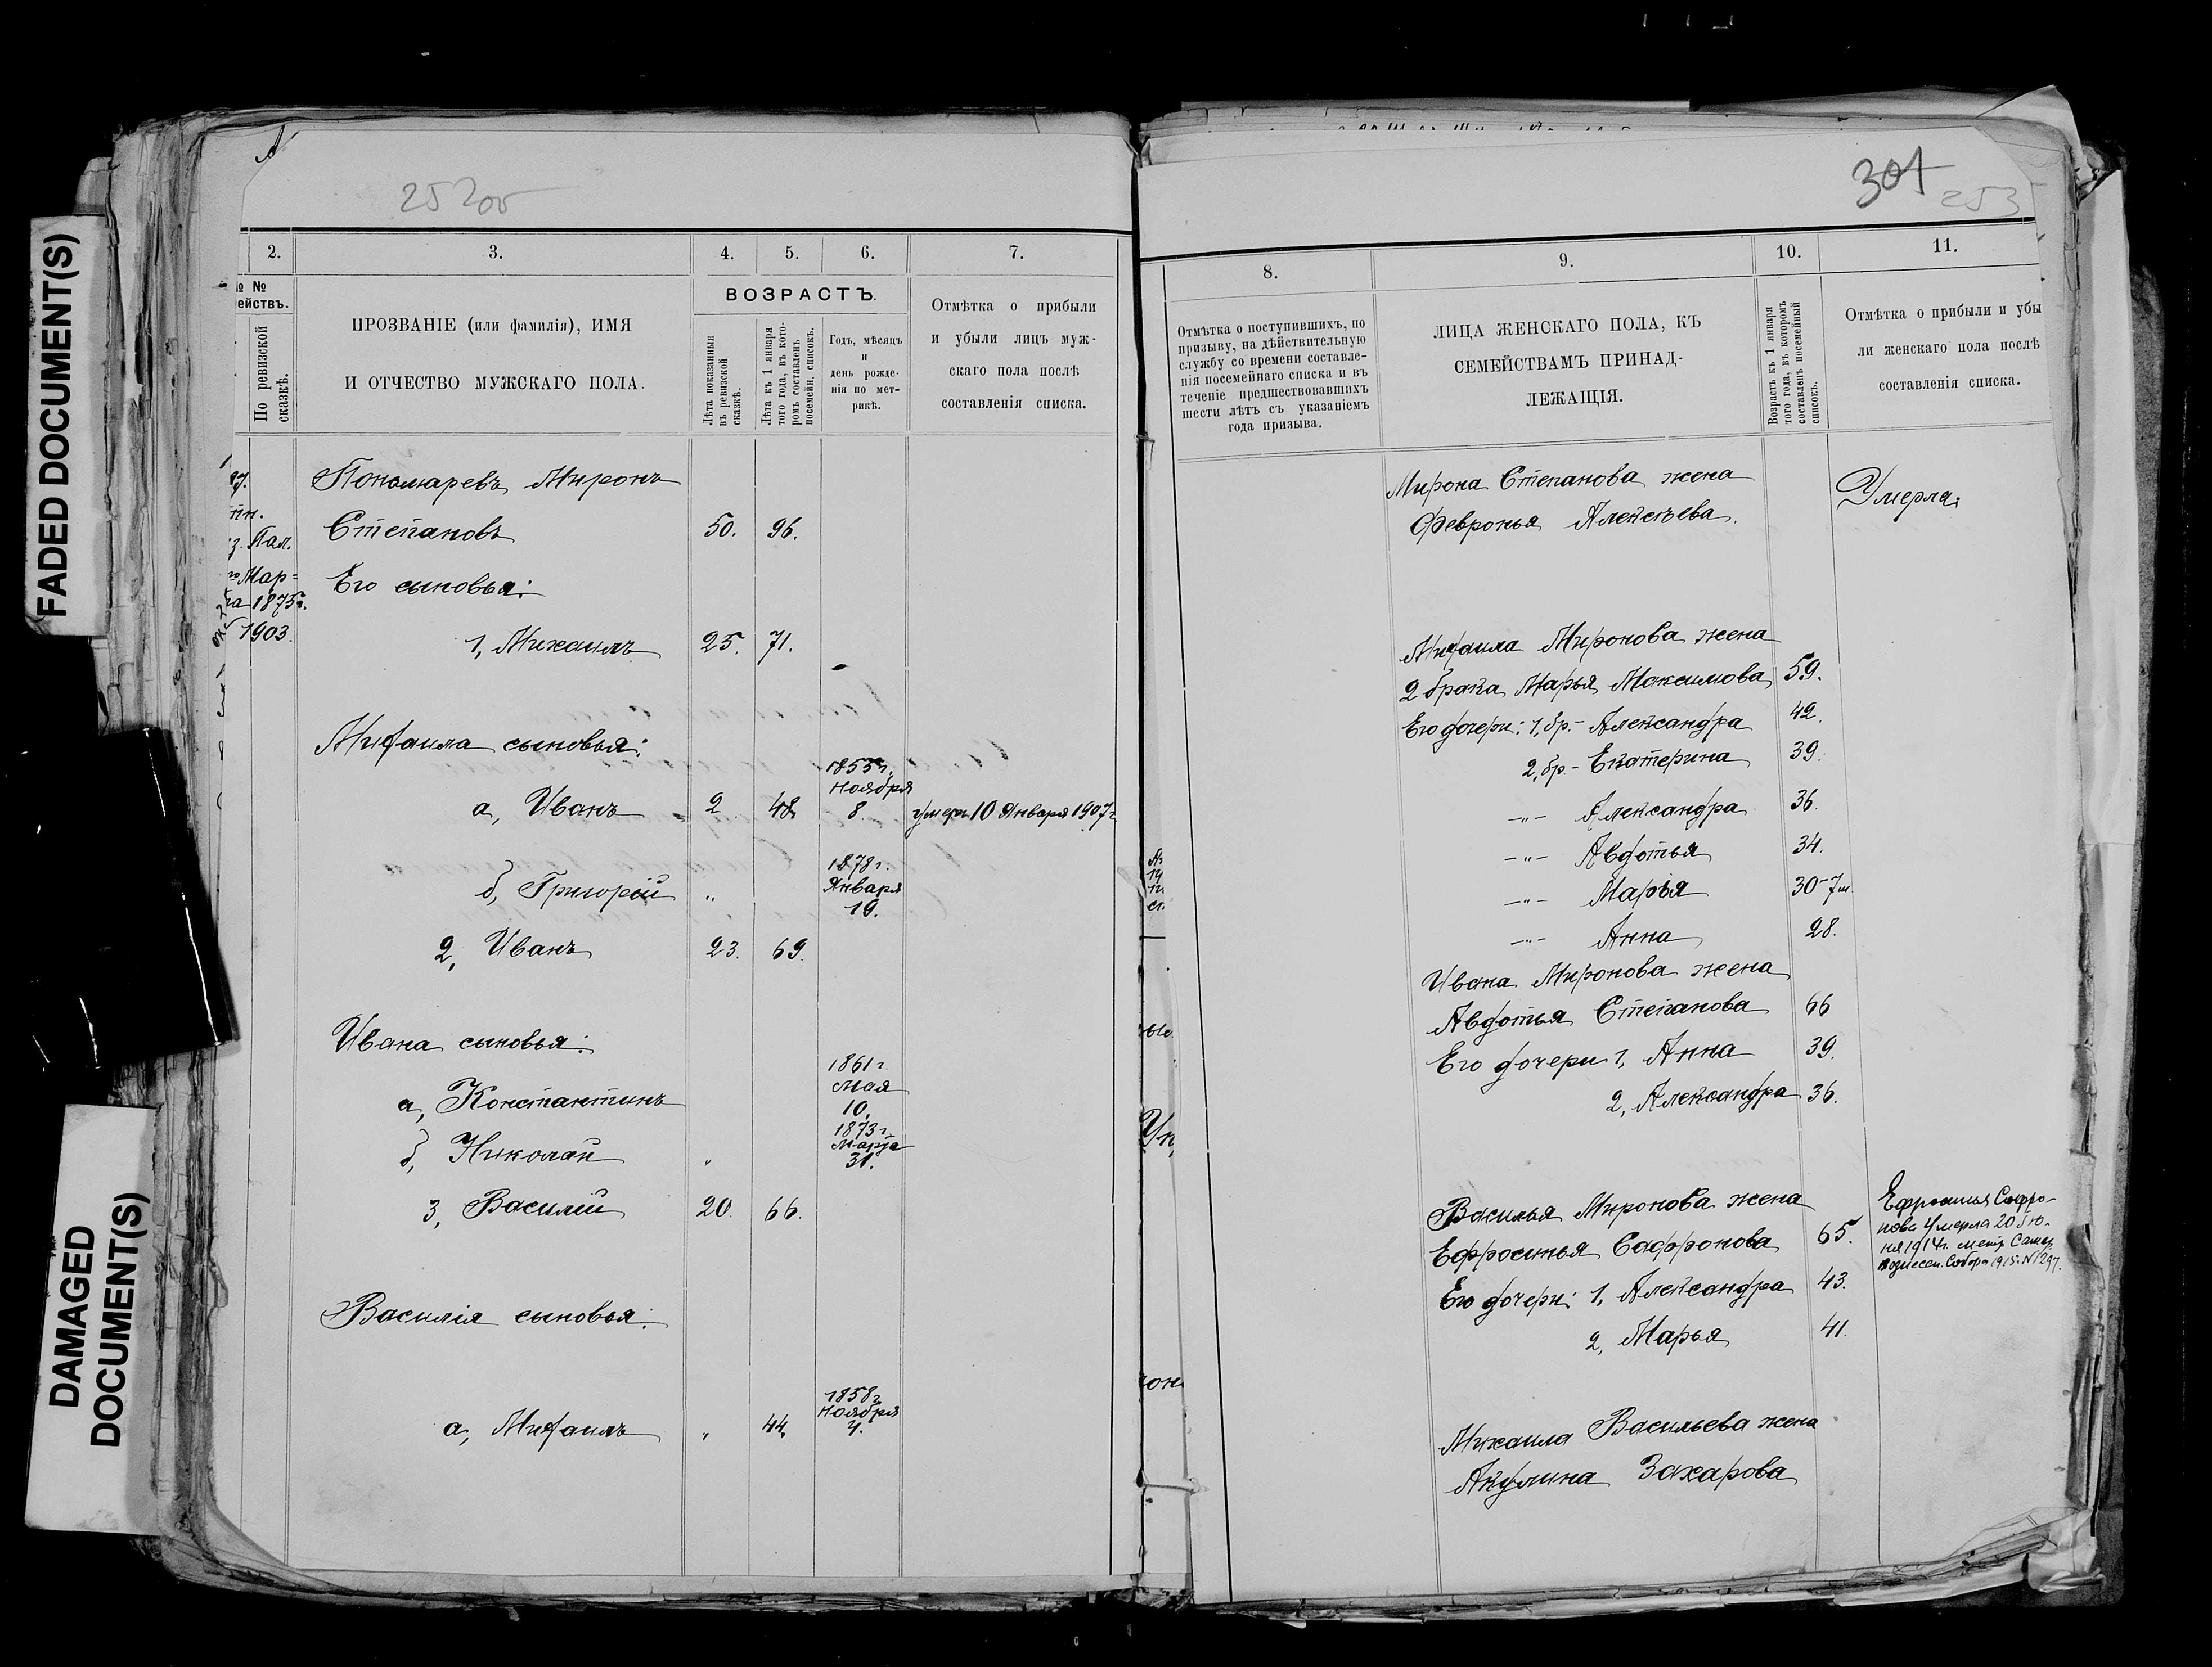 FADED DOCUMENT(S)
DAMAGED
DOCUMENT(S)
2.
3.
4.
5.
6.
7.
№
ействъ.
По ревизской
сказкѣ.
ПРОЗВАНІЕ (или фамилія), ИМЯ
И ОТЧЕСТВО МУЖСКАГО ПОЛА.
ВОЗРАСТЪ.
Лѣта показанныя
въ ревизской
сказкѣ.
Лѣта къ 1 января
того года, въ кото-
ромъ составленъ
посемейн. списокъ.
Годъ, мѣсяцъ
и
день рожде-
нія по мет-
рикѣ.
Отмѣтка о прибыли
и убыли лицъ муж-
скаго пола послѣ
составленія списка.
Пал.
Мар=
1875г.
1903.
Пономаревъ Миронъ
Степановъ 50. 96.
Его сыновья:
1, Михаилъ 25. 71.
Михаила сыновья:
1853г.
Ноября
а, Иванъ 2 48 8. умеръ 10 Января 1907г
1878г.
Января
б, Григорій „ 19.
2, Иванъ 23. 69.
Ивана сыновья:
1861г
Мая
а, Константинъ 10.
1873г
Марта
б, Николай „ 31.
3, Василій 20. 66.
Василія сыновья:
1858г
Ноября
а, Михаилъ „ 44 4.
301
253
8.
9.
10.
11.
Отмѣтка о поступившихъ, по
призыву, на дѣйствительную
службу со времени составле-
нія посемейнаго списка и въ
теченіе предшествовавшихъ
шести лѣтъ съ указаніемъ
года призыва.
ЛИЦА ЖЕНСКАГО ПОЛА, КЪ
СЕМЕЙСТВАМЪ ПРИНАД-
ЛЕЖАЩІЯ.
Возрастъ къ 1 января
того года, въ которомъ
составленъ посемейный
списокъ.
Отмѣтка о прибыли и убы
ли женскаго пола послѣ
составленія списка.
Мирона Степанова жена
Февронья Алексѣева. Умерла.
Михаила Миронова жена
2 брака Марья Максимова 59.
Его дочери: 1, бр.- Александра 42.
2, бр.- Екатерина 39.
-„- Александра 36.
-„- Авдотья 34.
-„- Марья 30-7м.
-„- Анна 28.
Ивана Миронова жена
Авдотья Степанова 66
Его дочери 1, Анна 39.
2, Александра 36.
Василья Миронова жена
Ефросинья Сафронова 65.
Ефросинья Софро-
нова умерла 20 Ію-
ня 1914г. метр. Самар.
Вознесен. Собора 1915г. №1297.
Его дочери: 1, Александра 43.
2, Марья 41.
Михаила Васильева жена
Акулина Захарова